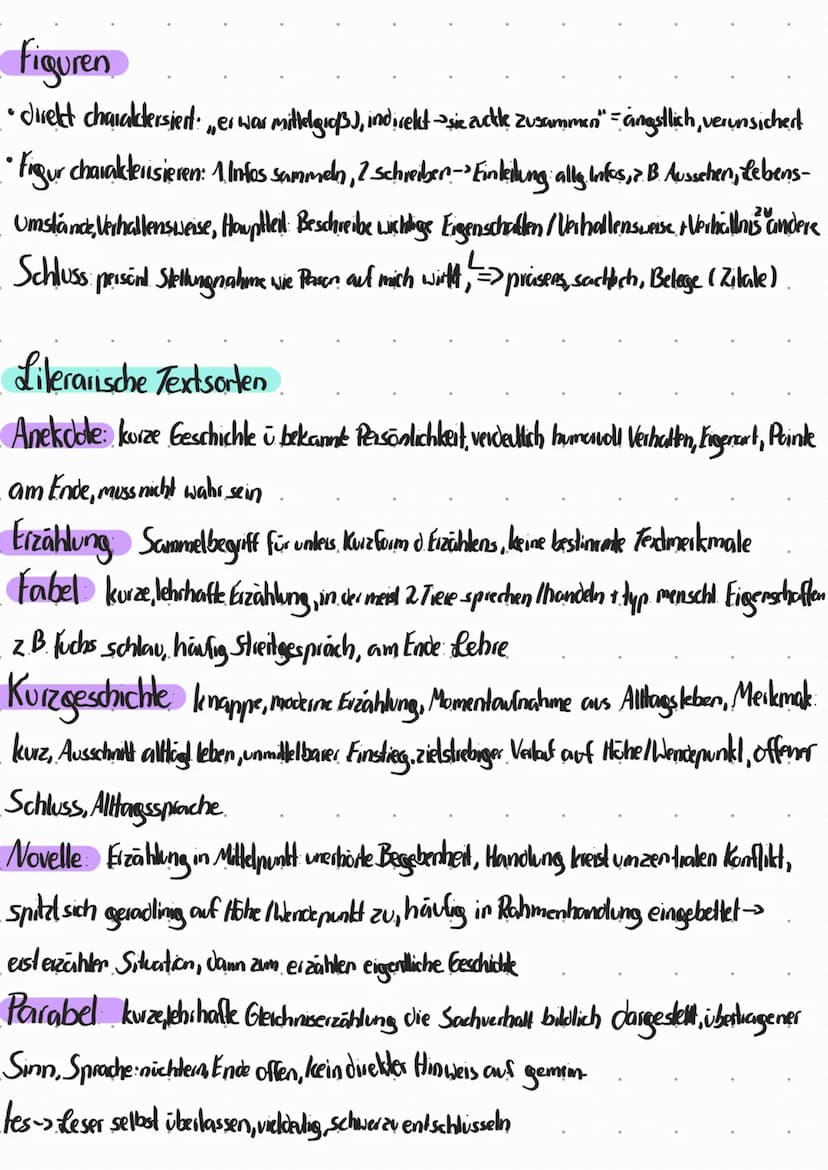 Figuren
• direkt charaktersiert: „er war mittelgroß), indirekt → sie zuckte zusammen" = ängstlich, verunsichert
• Figur charakterisieren: 1 Infos sammeln, 2 schreiben -> Einleitung: allg. Infos, z B Aussehen, Lebens-
Umstände, Verhaltensweise, Hauptteil: Beschreibe wichtige Eigenschaften / Verhaltensweise + Verhältnis zu andere
Schluss: persönl Stellungnahme wie Person auf mich wirkt, => präsens, sachlich, Belege (Zitate)
Literarische Textsorten
Anekdote: kurze Geschichte ü bekannte Persönlichkeit, verdeutlich humorvoll Verhalten, Eigenart, Pointe
am Ende, muss nicht wahr sein
Erzählung Sammelbegriff für unters. Kurzform d. Erzählens, keine bestimmte Textmerkmale
Fabel kurze, lehrhafte Erzählung, in der meist 2 Tiere sprechen / handeln + typ. menschl Eigenschaften
z.B. Fuchs schlau, häufig Streitgespräch, am Ende: Lehre
Kurzgeschichte knappe, moderne Erzählung, Momentaufnahme aus Alltagsleben, Merkmale:
kurz, Ausschnitt alltägl leben, unmittelbarer Einstieg, zielstrebiger Verlauf auf Höhe/Wendepunkt, offener
Schluss, Alltagssprache.
Novelle: Erzählung in Mittelpunkt unerhörte Begebenheit, Handlung kreist um zentralen Konflikt,
spitzt sich geradlinig auf Höhe / Wendepunkt zu, häufig in Rahmenhandlung eingebettet ->
erst erzähler Situation, dann zum erzählen eigentliche Geschichte
Parabel: kurze, lehrhafte Gleichniserzählung die Sachverhalt bildlich dargestellt, übertragener
Sinn, Sprache: nüchtern, Ende offen, kein direkter Hinweis auf gemein-
tes -> Leser selbst überlassen, vieldeutig, schwer zu entschlüsseln